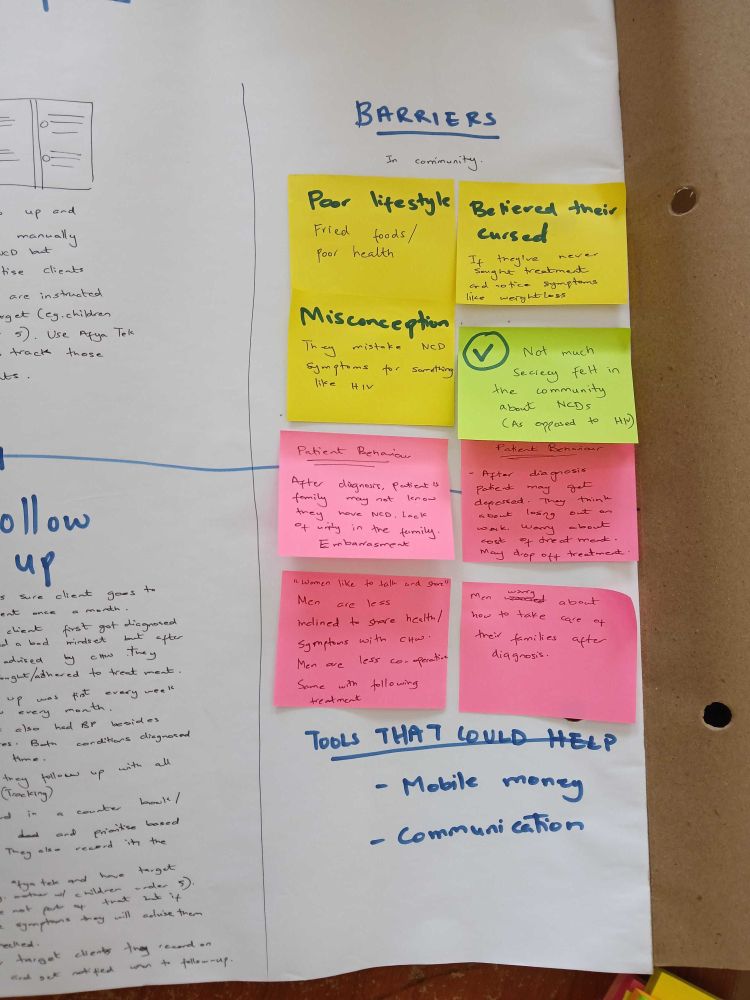 up and
manually
NCD but
clients
are instructed
(eg. children
5). Use Afya Tek
track those
ollow
up
sure client goes to
once a month.
client first got diagnosed
a bad mindset but after
advised by CHW they
/adhered to treatment.
up was first every week
every month.
also had BP besides
Both conditions diagnosed
time.
they follow up with all
(Tracking)
in a counter book/
and prioritise based
They also record in the
afya tek and have target
mother w/ children under 5).
not part of that but if
symptoms they will advise them
target clients they record on
and get notified when to follow-up.
BARRIERS
In community.
Poor lifestyle
Fried foods/
poor health
Believed their
cursed
If they've never
sought treatment
and notice symptoms
like weightloss
Misconception
They mistake NCD
symptoms for something
like HIV
Not much
secrecy felt in
the community
about NCDs
(As opposed to HIV)
Patient Behaviour
After diagnosis, patient's
family may not know
they have NCD. Lack
of unity in the family.
Embarrasment
Patient Behaviour
- After diagnosis
patient may get
depressed. They think
about losing out on
work. Worry about
cost of treatment.
May drop off treatment.
"Women like to talk and share"
Men are less
inclined to share health/
symptoms with CHW.
Men are less co-operative
Same with following
treatment
Men worry about
how to take care of
their families after
diagnosis.
TOOLS THAT COULD HELP
- Mobile money
- Communication